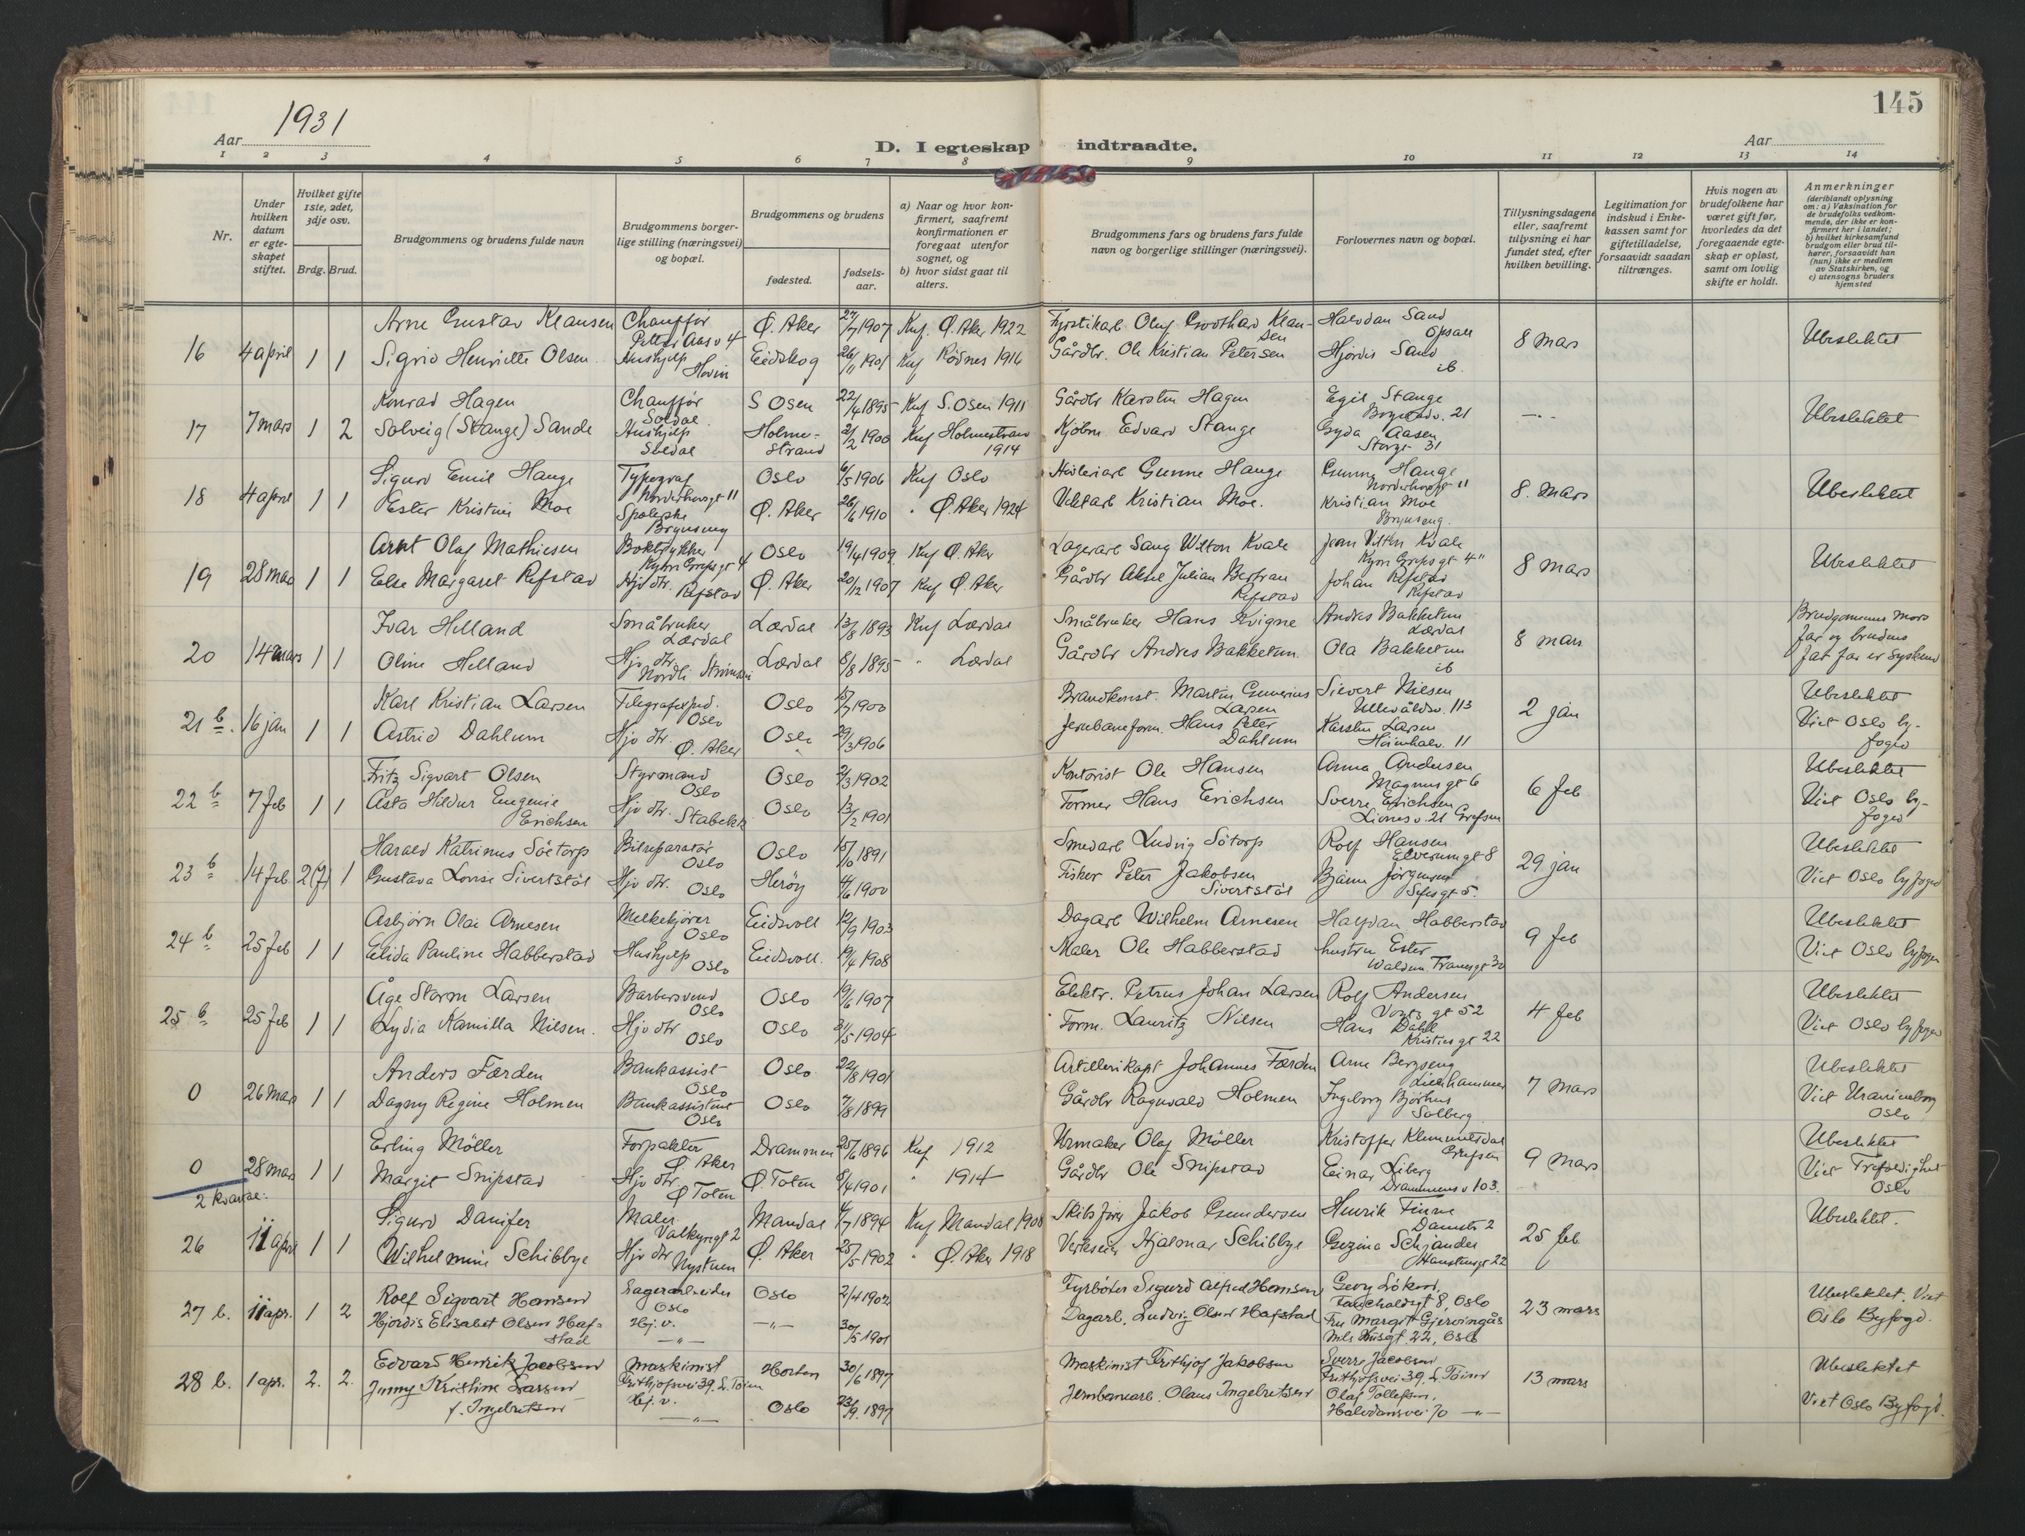 145
Aar 1931
D. I egteskap indtraadte.
Aar
1 2 3 4 5 6 7 8 9 10 11 12 13 14
Nr.
Under hvilken datum er egteskapet stiftet.
Hvilket gifte 1ste, 2det, 3dje osv.
Brdg. Brud.
Brudgommens og brudens fulde navn
Brudgommens borgerlige stilling (næringsvei) og bopæl.
Brudgommens og brudens
fødested.
fødselsaar.
a) Naar og hvor konfirmert, saafremt konfirmationen er foregaat utenfor sognet, og
b) hvor sidst gaat til alters.
Brudgommens fars og brudens fars fulde navn og borgerlige stillinger (næringsvei).
Forlovernes navn og bopæl.
Tillysningsdagene eller, saafremt tullysning ei har fundet sted, efter hvilken bevilling.
Legitimation for indskud i Enkekassen samt for giftetilladelse, forsaavidt saadan tiltrænges.
Hvis nogen av brudefolkene har været gift før, hvorledes da det foregaaende egteskap er opløst, samt om lovlig skifte er holdt.
Anmerkninger (deriblandt oplysning om: a) Vaksination for de brudefolks vedkommende, der ikke er konfirmert her i landet; b) hvilket kirkesamfund brudgom eller brud tilhører, forsaavidt han (hun) ikke er medlem av Statskirken, og c) utensogns bruders hjemsted
16 4 april 1 1 Arne Gustav Klausen Chauffør Ø. Aker 27/7 1907 Knf. Ø. Aker 1922 Oluf Gotthard Klausen Halvdan Sand Opsall 8 mars Ubeslektet
Sigrid Henriette Olsen Hushjelp Hovin Eidskog 26/11 1901 Knf Rødnes 1916 Gårdbr. Ole Kristian Petersen Hjørdis Sand ib.
17 7 mars 1 2 Konrad Hagen Chauffør Soldal S Osen 22/4 1895 Knf S. Osen 1911 Gårdbr Karsten Hagen Egil Stange 21 —.- Ubeslektet
Solveig (Stange) Sande Hushjelp Holmestrand 2/2 1900 Knf Holmestrand 1914 Kjøbm Edvard Stange Gyda Aasen Storgt 31
18 4 april 1 1 Sigurd Emil Hauge Typograf Norderhovsgt 11 Oslo 6/5 1906 Knf Oslo Gunne Hauge Gunny Hauge Norderhovsgt 11 8. Mars Ubeslektet
Ester Kristine Moe Brynseng Ø. Aker 26/6 1910 " Ø. Aker 1924 Kristian Moe. Kristian Moe Brynseng.
19 28 mars 1 1 Arnt Olaf Mathiesen Boktrykker Oslo 19/4 1909 Knf Ø. Aker Lagerarb 8 mars Ubeslektet
Else Margaret Refstad Hjv dtr. Refstad Ø. Aker 20/12 1907 Knf Ø. Aker Gårdbr Aksel Julian Bertran Refstad Johan Refstad Refstad
20 14 mars 1 1 Ivar Helland Småbruker Lærdal Lærdal 13/8 1893 Knf Lærdal Småbruker Hans Kvigne Andres Bakketun Lærdal 8 mars Brudgommens mors far og brudens far far er Syskend
Oline Helland Hjv dtr Nordli Lærdal 8/8 1895 " Lærdal Gårdbr Andres Bakketun. Ola Bakketun ib
21 b. 16 jan 1 1 Karl Kristian Larsen Telegrafexped. Oslo Oslo 15/7 1900 Brandkonst. Martin Gunerius Larsen Sievert Nilsen Ullevåldsv. 113 2 jan Ubeslektet
Astrid Dahlum Hjv dtr. Ø. Aker Oslo 29/3 1906 Jernbaneform. Hans Peter Dahlum Karsten Larsen 11 Viet Oslo byfoged
22 b 7 feb 1 1 Fritz Sigvart Olsen Styrmand Oslo Oslo 2/3 1902 Kontorist Ole Hansen Anna Andersen Magnusgt 6 6 feb Ubeslektet
Asta Hildur Eugenie Erichsen Hjv dtr. Stabekk Oslo 13/2 1901 Former Hans Erichsen Sverre Erichsen 21 Grefsen Viet Oslo byfoged
23 b 14 feb 2(f) 1 Harald Katrinus Söetorp Bilreparatør Oslo Oslo 15/10 1891 Smedarb Ludvig Sötorp Rolf Hansen Elverumgt 8 29 jan Ubeslektet
Gustava Lovise Sivertstöl Hjv dtr. Oslo Herøy 4/6 1900 Fisker Peter Jakobsen Sivertstöl Bjarne Jørgensen 5. Viet Oslo byfoged
24 b 25 feb 1 1 Asbjörn Olai Arnesen Melkekjører Oslo Eidsvoll 12/9 1903 Dagarb Wilhelm Arnesen Halfdan Habberstad 9 feb Ubeslektet
Elida Pauline Habberstad Hushjelp Oslo Eidsvoll. 19/4 1908 Maler Ole Habberstad hustru Ester Waldem. Tranesgt 30 Viet Oslo byfoged
25 b 25 feb 1 1 Åge Storm Larsen Barbersvend Oslo Oslo 19/6 1907 Elektr. Petrus Johan Larsen Rolf Andersen Vogts gt 52 4 feb Ubeslektet
Lydia Kamilla Nilsen. Hjv dtr Oslo Oslo 31/5 1904 Form. Lauritz Nilsen Hans Dahl 22 Viet Oslo byfoged
0 26 Mars 1 1 Anders Færden Bankassist Oslo Oslo. 22/8 1901 Artillerikapt Johannes Færden Arne Bergseng Lillehammer 7 Mars Ubeslektet
Dagny Regine Holmen Bankassistent Oslo Oslo 7/8 1899 Gårdbr Ragnvald Holmen Ingeborg Björhus Solberg Viet Uranienborg Oslo
0 28 mars 1 1 Erling Möller Forpakter Ø Aker Drammen 25/6 1896 Knf 1912 Urmaker Olaf Møller Kristoffer Klemmetsdal Grefsen 9 Mars Ubeslektet
2 kvartal:
Margit Snipstad Hjv dtr. Ø Toten Ø. Toten 8/4 1901 " 1914 Gårdbr Ole Snipstad Einar Liberg Drammensv 103. Viet Trefoldighet Oslo
26 11 april 1 1 Sigurd Danifer Maler Valkyrigt 2 Mandal 4/7 1894 Knf Mandal 1908 Skibsfører Jakob Gundersen Henrik Finne 2 25 feb. Ubeslektet.
Wilhelmine Schibbye Hjv dtr Nystuen Ø. Aker 25/5 1902 " Ø. Aker 1918 Verkseier Hjalmar Schibbye Gezina Schjander 22
27 b. 11 apr. 1 2 Rolf Sigvart Hansen Lagerarbeider Oslo Oslo 2/4 1902 Fyrbøter Sigurd Alfred Hansen Georg Løken, 8, Oslo 23 mars Ubeslektet. Viet
Hjördis Elisabet Olsen Hafstad Hj. v. —"— —"— 30/5 1901 Dagarb. Ludvig Olsen Hafstad Fru Margit Gjervingås Nils Husgt 22, Oslo Oslo Byfogd.
28 b. 1 apr. 2. 2. Edvard Henrik Jacobsen Maskinist Frithjofsvei 39. L. Tøien Horten 30/6 1897 Maskinist Frithjof Jakobsen Sverre Jacobsen Frithjofsvei 39. L. Tøien 13 mars Ubeslektet
Jenny Kristine Larsen f. Ingebretsen Hj. v. —"— Oslo 23/9. 1897 Jernbanearb. Olaus Ingebretsen Olaf Tollefsen, Halvdansvei 10 —"— Viet Oslo Byfogd.